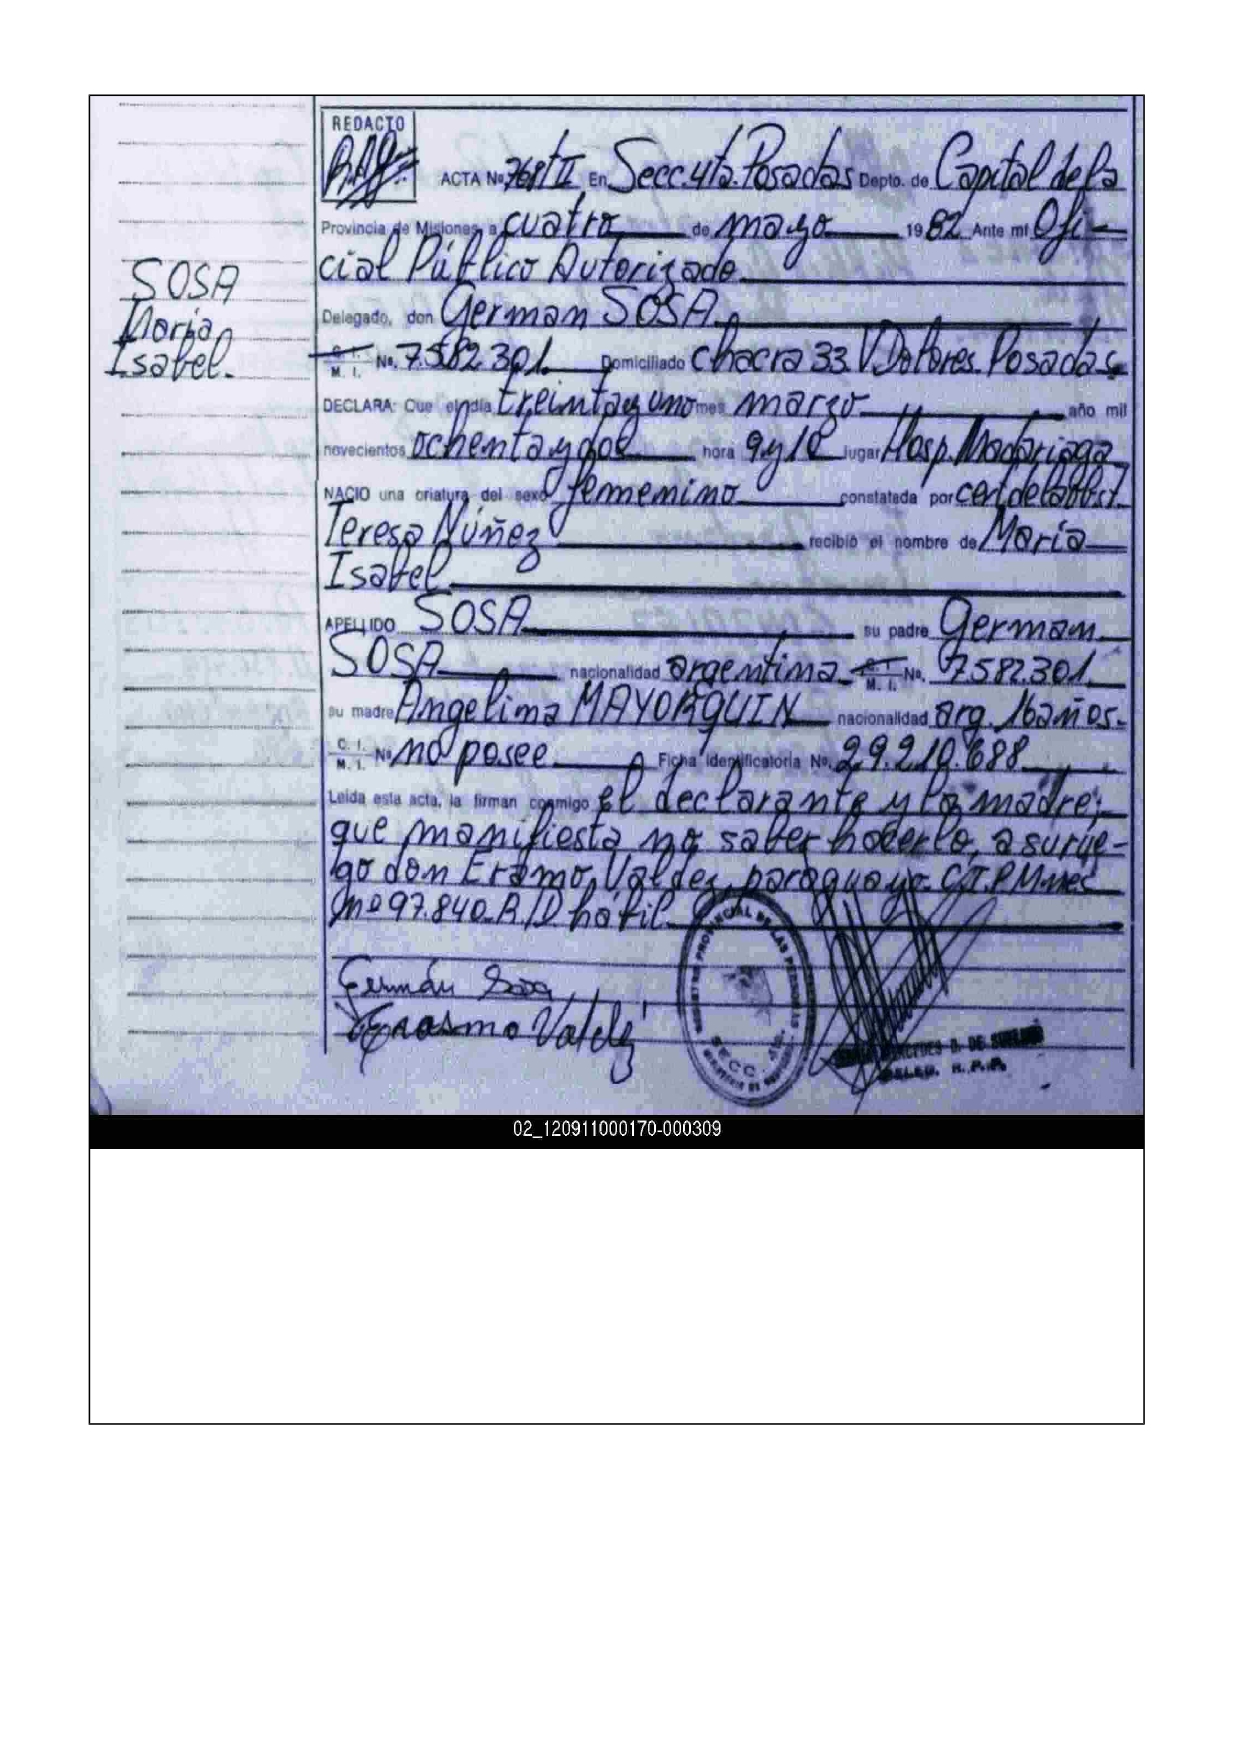 REDACTO
ACTA Nº 768 T II En Secc. 4ta. Posadas Depto. de Capital de la
Provincia de Misiones, a cuatro de mayo 1982 Ante mí Ofi-
cial Público Autorizado
SOSA
María
Isabel.
Delegado, don German SOSA
C. I.
M. I. Nº. 7.582.301. Domiciliado chacra 33. V. Dolores. Posadas
DECLARA: Que el día treinta y uno mes marzo año mil
novecientos ochenta y dos hora 9 y 10 lugar Hosp. Madariaga
NACIO una criatura del sexo femenino constatada por cert. de la obst.
Teresa Núñez recibió el nombre de María
Isabel
APELLIDO SOSA su padre German
SOSA nacionalidad argentina C. I.
M. I. Nº. 7.582.301.
su madre Angelina MAYORQUIN nacionalidad arg. 16 años.
C. I.
M. I. Nº no posee Ficha Identificatoria No. 29.210.688
Leída esta acta, la firman conmigo el declarante y la madre,
que manifiesta no saber hacerlo, a su rue-
go don Eramo Valdez, paraguayo. C.I.P. Mnes
Nº 97.840. R/D hábil
Germán Sosa
Erasmo Valdez
SECC. 4ta.
DELEG. R.P.P.
02_120911000170-000309